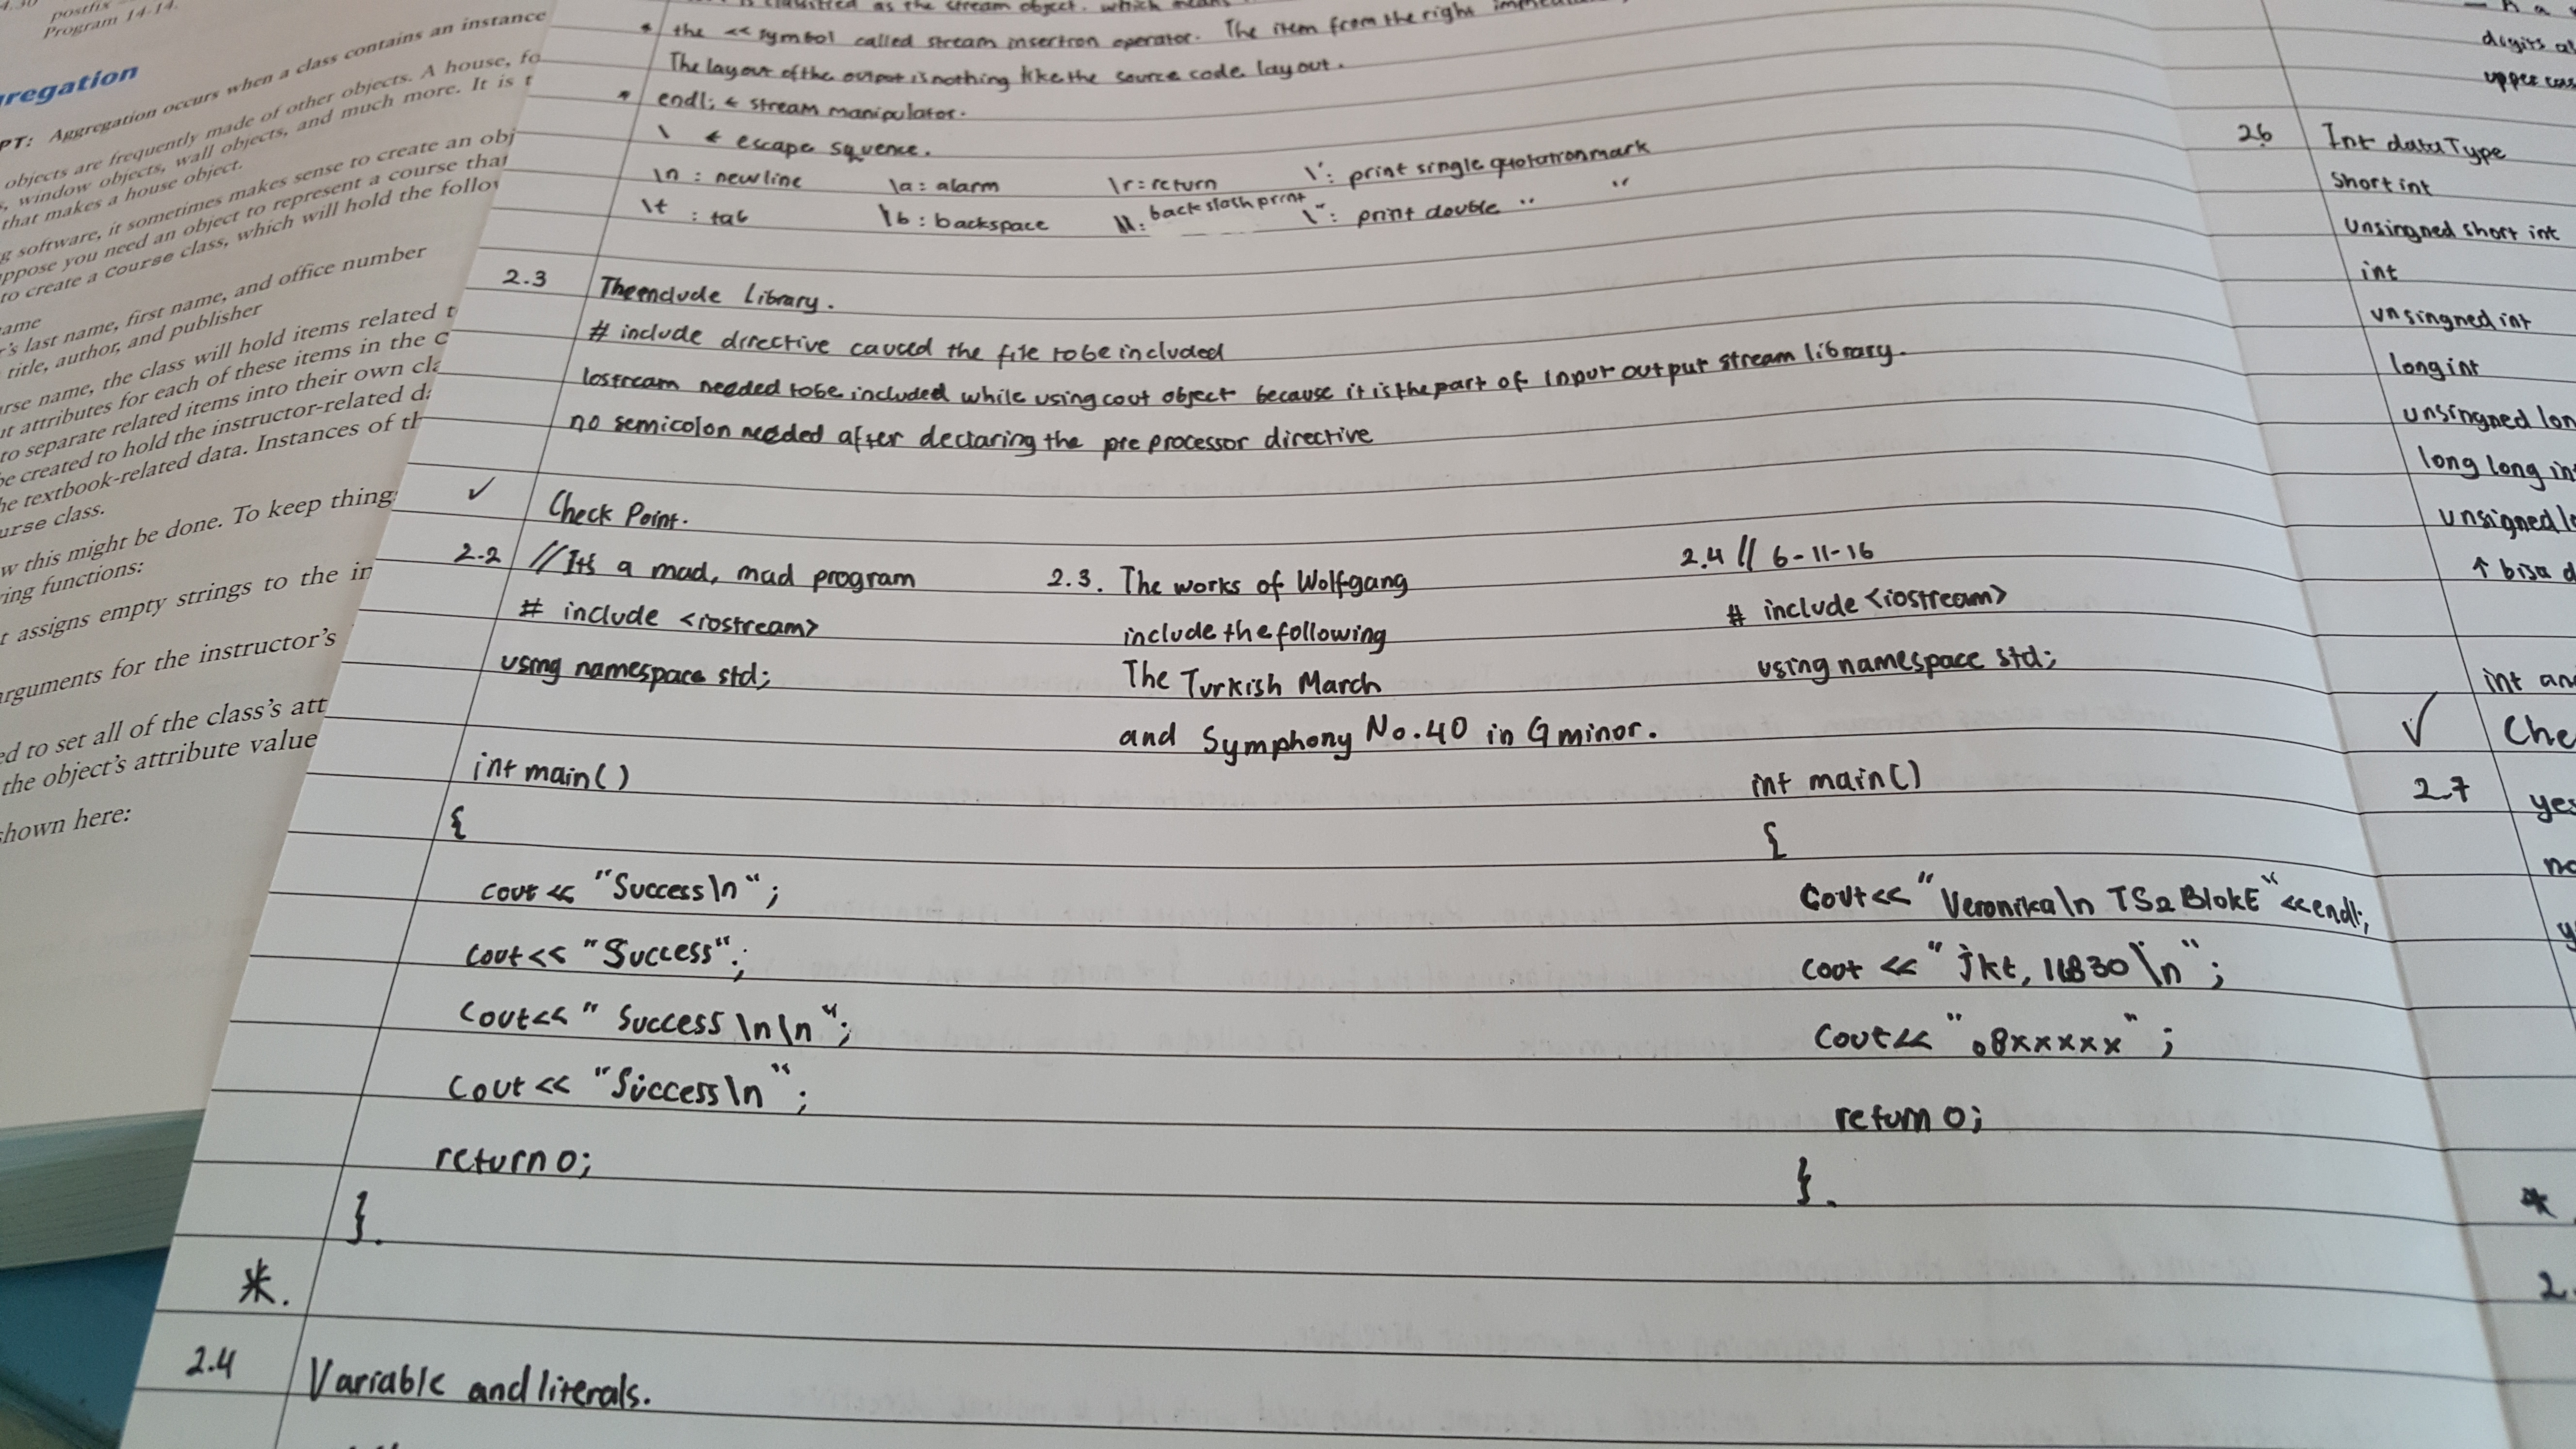 postfix
Program 14-14.
regation
PT: Aggregation occurs when a class contains an instance
objects are frequently made of other objects. A house, fo
, window objects, wall objects, and much more. It is t
that makes a house object.
g software, it sometimes makes sense to create an obj
ppose you need an object to represent a course that
to create a Course class, which will hold the follow
ame
's last name, first name, and office number
title, author, and publisher
rse name, the class will hold items related t
t attributes for each of these items in the C
to separate related items into their own cla
be created to hold the instructor-related da
he textbook-related data. Instances of th
urse class.
w this might be done. To keep thing
ing functions:
t assigns empty strings to the in
arguments for the instructor's
ed to set all of the class's att
the object's attribute value
shown here:
is classified as the stream object. which means
* the << symbol called stream insertion operator. The item from the right
The layout of the output is nothing like the source code layout.
* endl; ← stream manipulator.
\ ← escape squence.
\n : newline \a : alarm \r = return \' : print single quotation mark
\t : tab \b : backspace \\ : backslash print \" : print double " "
2.3 The enclude Library.
# include directive caused the file to be included
Iostream needed to be included while using cout object because it is the part of input output stream library.
no semicolon needed after declaring the pre processor directive
✓ Check Point.
2.2 // It's a mad, mad program
# include <iostream>
using namespace std;
int main()
{
cout << "Success\n";
cout << "Success";
cout << " Success \n\n";
cout << "Success\n";
return 0;
}.
2.3. The works of Wolfgang
include the following
The Turkish March
and Symphony No.40 in G minor.
2.4 // 6-11-16
# include <iostream>
using namespace std;
int main()
{
cout << "Veronika\n TS2 BlokE" << endl;
cout << " jkt, 11830 \n";
cout << " 08xxxxx" ;
return 0;
}.
*.
2.4 Variable and literals.
digits al
upper cas
26 Int data Type
Short int
Unsingned short int
int
unsingned int
long int
unsingned lon
long long in
unsigned lo
↑ bisa d
int an
✓ Che
2.7 yes
no
y
*
2.